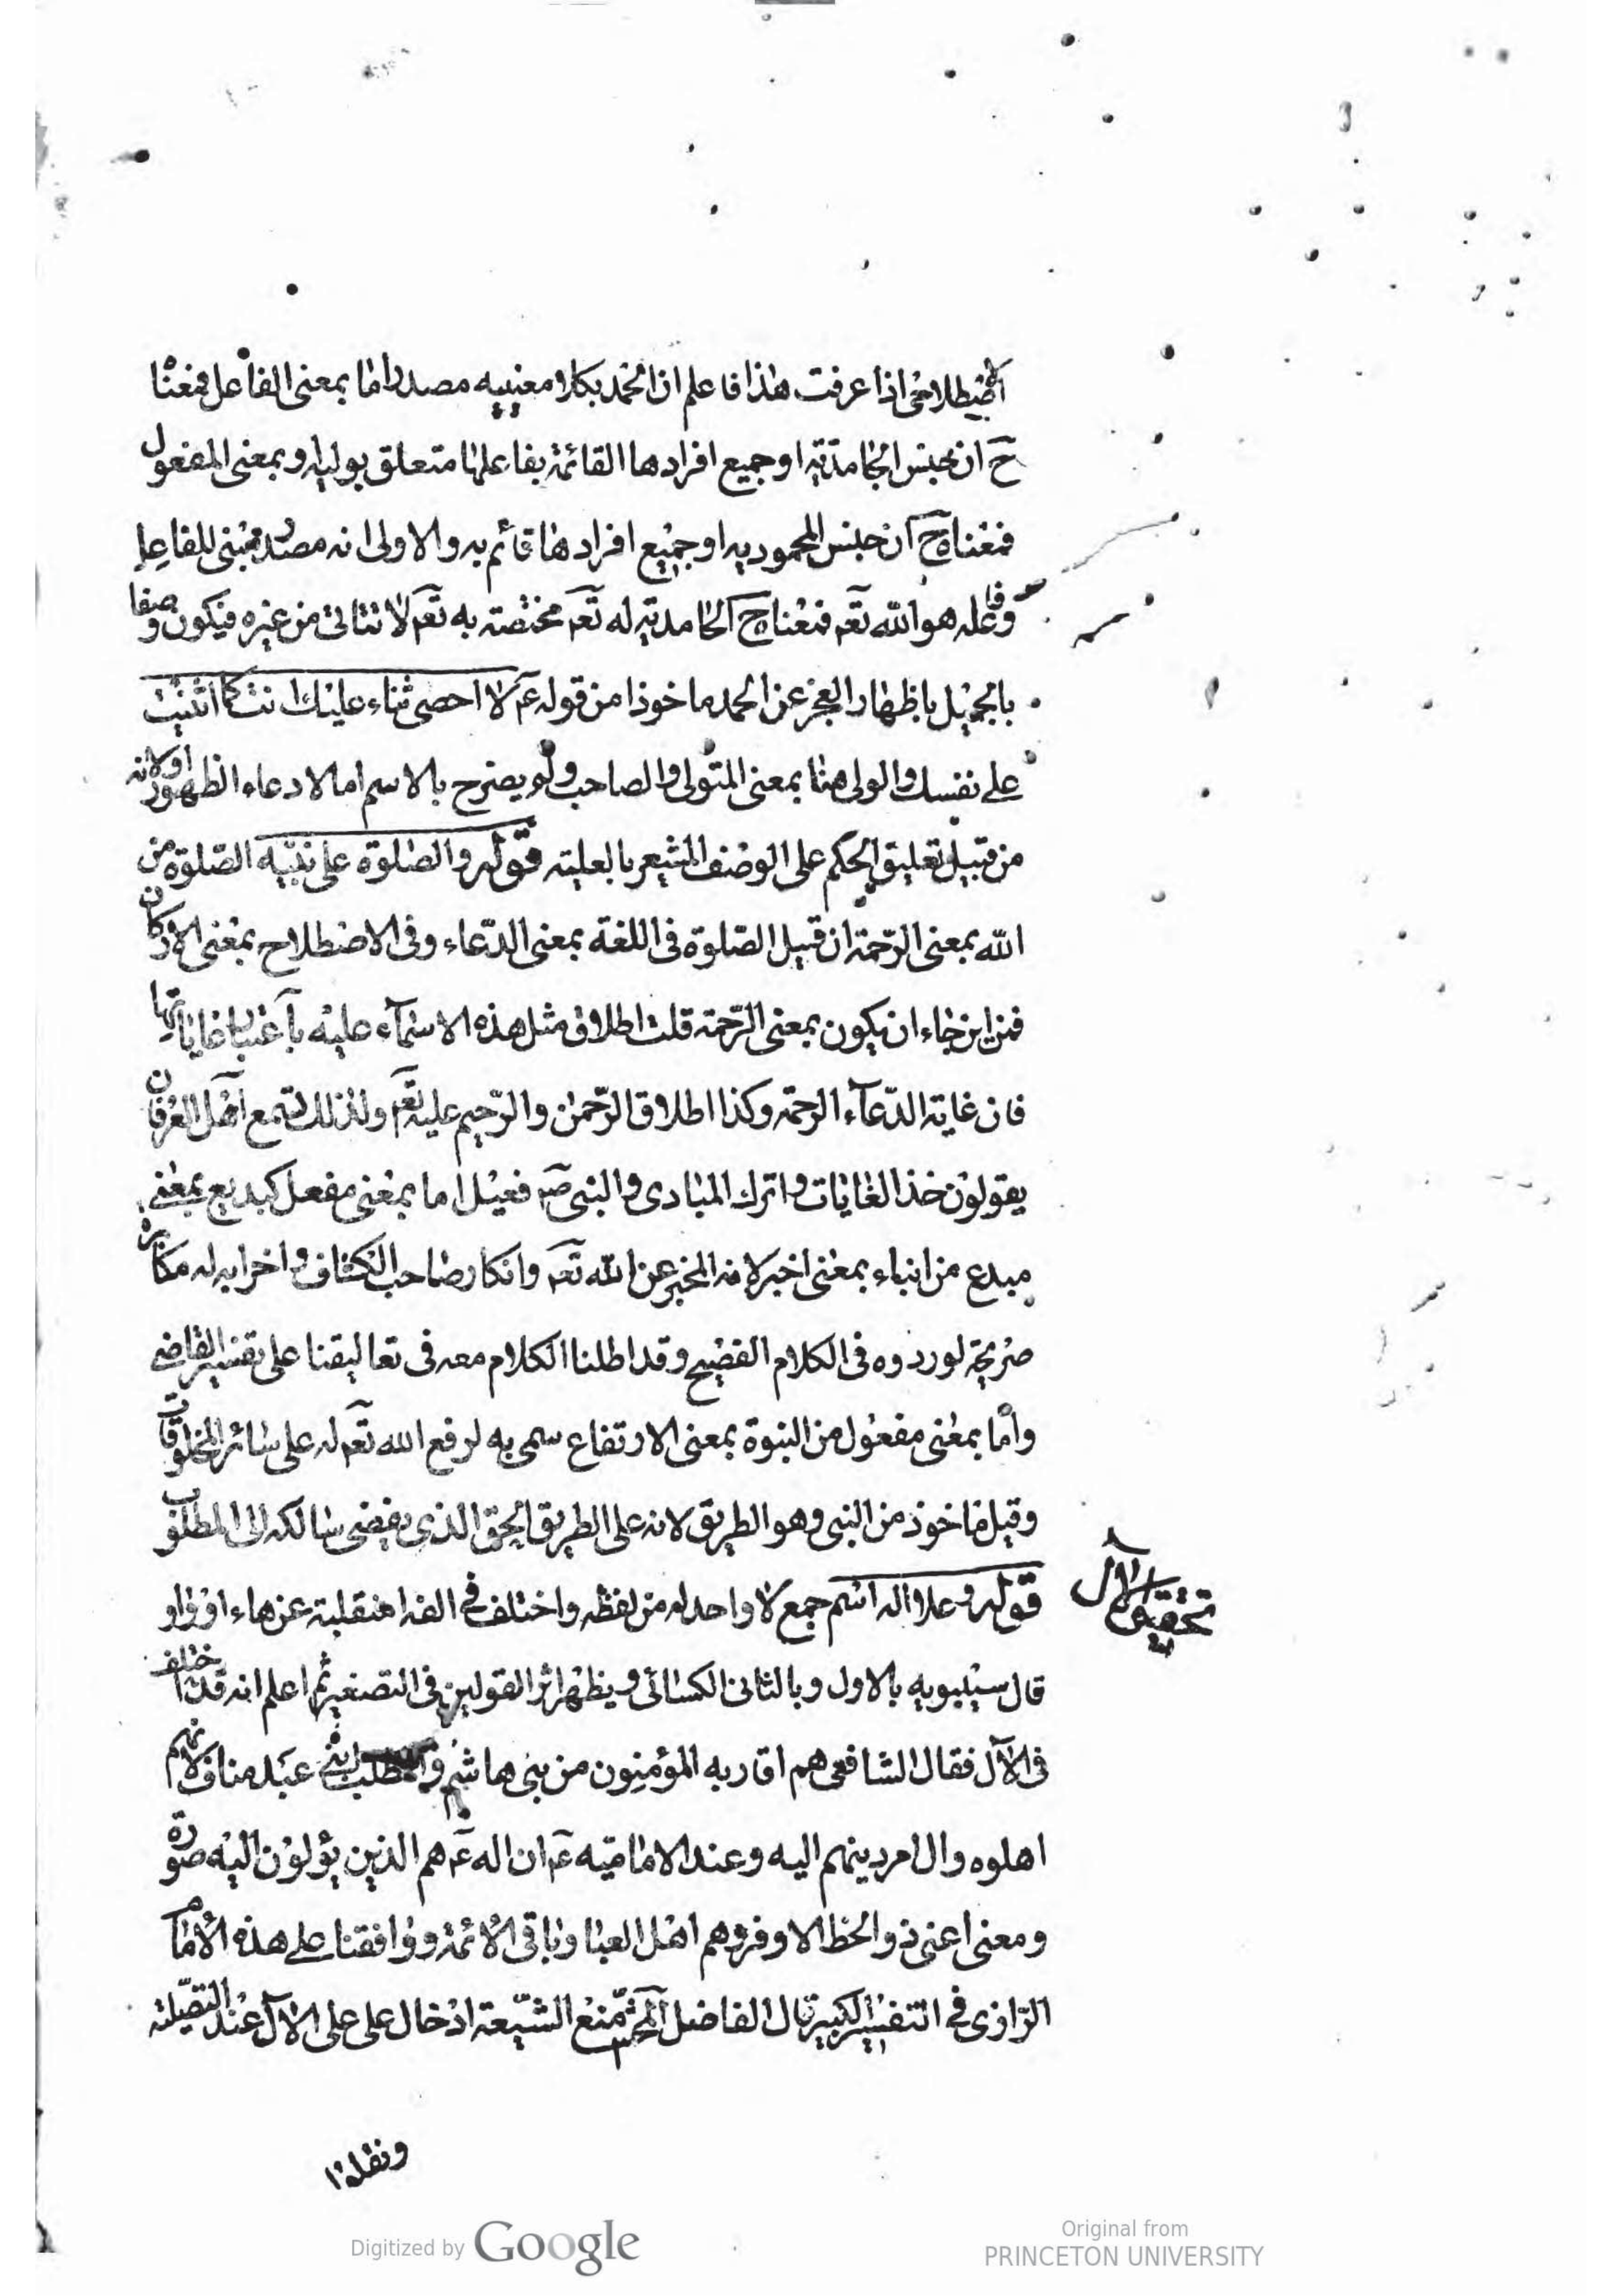 الاصطلاحى اذا عرفت هذا فاعلم ان الحمد بكلا معنييه مصدر اما بمعنى الفاعل فمعناه
ح ان جنس الحامدية او جميع افرادها القائمة بفاعلها متعلق بوليه وبمعنى المفعول
فمعناه ح ان جنس المحمودية او جميع افرادها قائم به والاولى انه مصدر مبنى للفاعل
وفاعله هو الله تعم فمعناه ح الحامدية له تعم مختصة به تعم لا تتاتى من غيره فيكون وصفا
بالجميل باظهار العجز عن الحمد ماخوذا من قوله عم لا احصى ثناء عليك انت كما اثنيت
على نفسك والولى هنا بمعنى المتولى والصاحب ولم يصرح بالاسم اما لادعاء الظهور او لانه
من قبيل تعليق الحكم على الوصف المشعر بالعلية قوله والصلوة على نبيه الصلوة من
الله بمعنى الرحمة ان قيل الصلوة فى اللغة بمعنى الدعاء وفى الاصطلاح بمعنى الاركان
فمن اين جاء ان يكون بمعنى الرحمة قلت اطلاق مثل هذه الاسماء عليه باعتبار غاياتها
فان غاية الدعاء الرحمة وكذا اطلاق الرحمن والرحيم عليه تعم ولذلك تسمع اهل العرفان
يقولون خذ الغايات واترك المبادى والنبى صم فعيل اما بمعنى مفعل كبديع بمعنى
مبدع من انباء بمعنى اخبر لانه المخبر عن الله تعم وانكار صاحب الكشاف واخرابه له مكابرة
صريحة لوروده فى الكلام الفصيح وقد اطلنا الكلام معه فى تعاليقنا على تفسير القاضى
واما بمعنى مفعول من النبوة بمعنى الارتفاع سمى به لرفع الله تعم له على سائر المخلوقات
وقيل ماخوذ من النبى وهو الطريق لانه على الطريق الحق الذى يفضى سالكه الى المطلوب
قوله وعلا اله اسم جمع لا واحد له من لفظه واختلف فى الفه امنقلبة عن هاء او واو
تحقيق الآل
قال سيبويه بالاول وبالثانى الكسائى ويظهر اثر القولين فى التصغير ثم اعلم انه قد اختلف
فى الآل فقال الشافعى هم اقاربه المؤمنون من بنى هاشم والمطلب ابنى عبد مناف لانهم
اهلوه وال امر دينهم اليه وعند الامامية عم ان اله عم هم الذين يؤلون اليه صورة
ومعنى اعنى ذو الحظ الاوفر وهم اهل العبا وباقى الائمة ووافقنا على هذه الامام
الرازى فى التفسير الكبير قال الفاضل المحشى منع الشيعة ادخال على على الآل عند التصلية
ونقلوا
Digitized by Google
Original from
PRINCETON UNIVERSITY